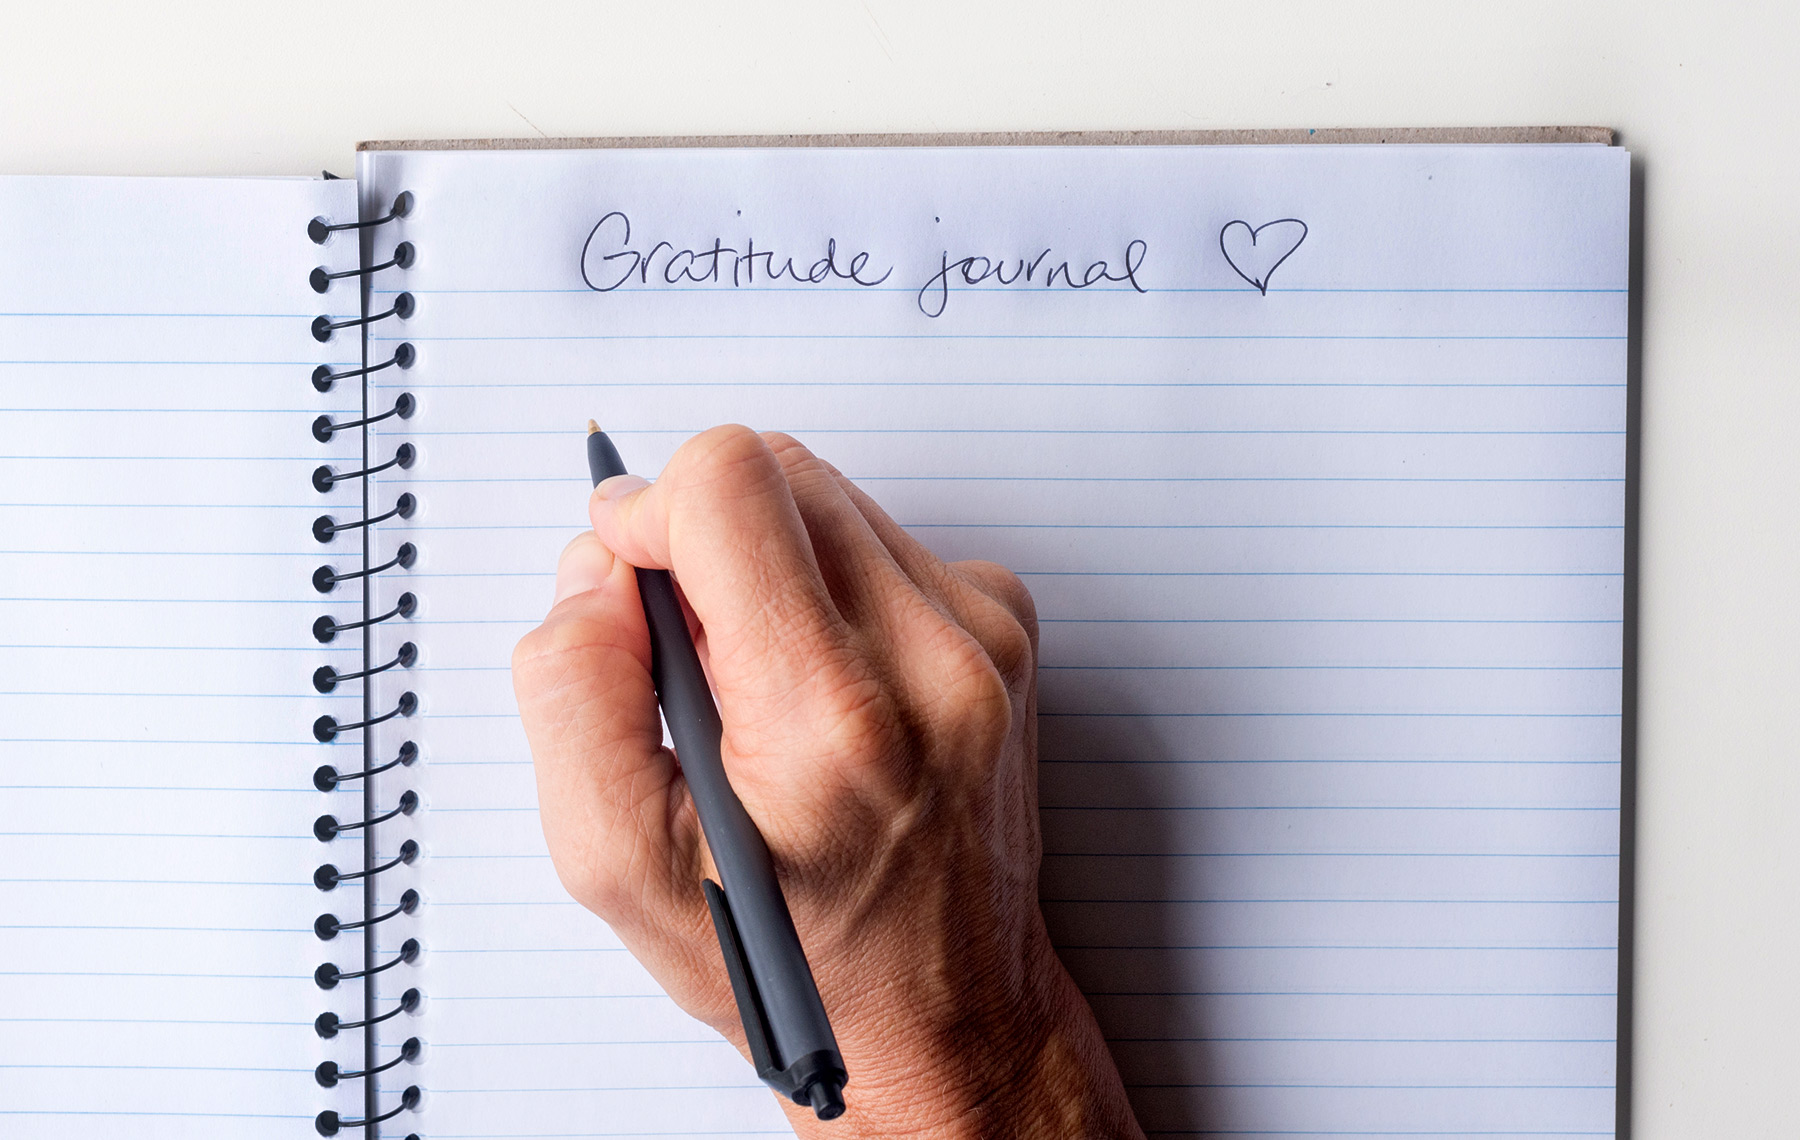 Gratitude journal